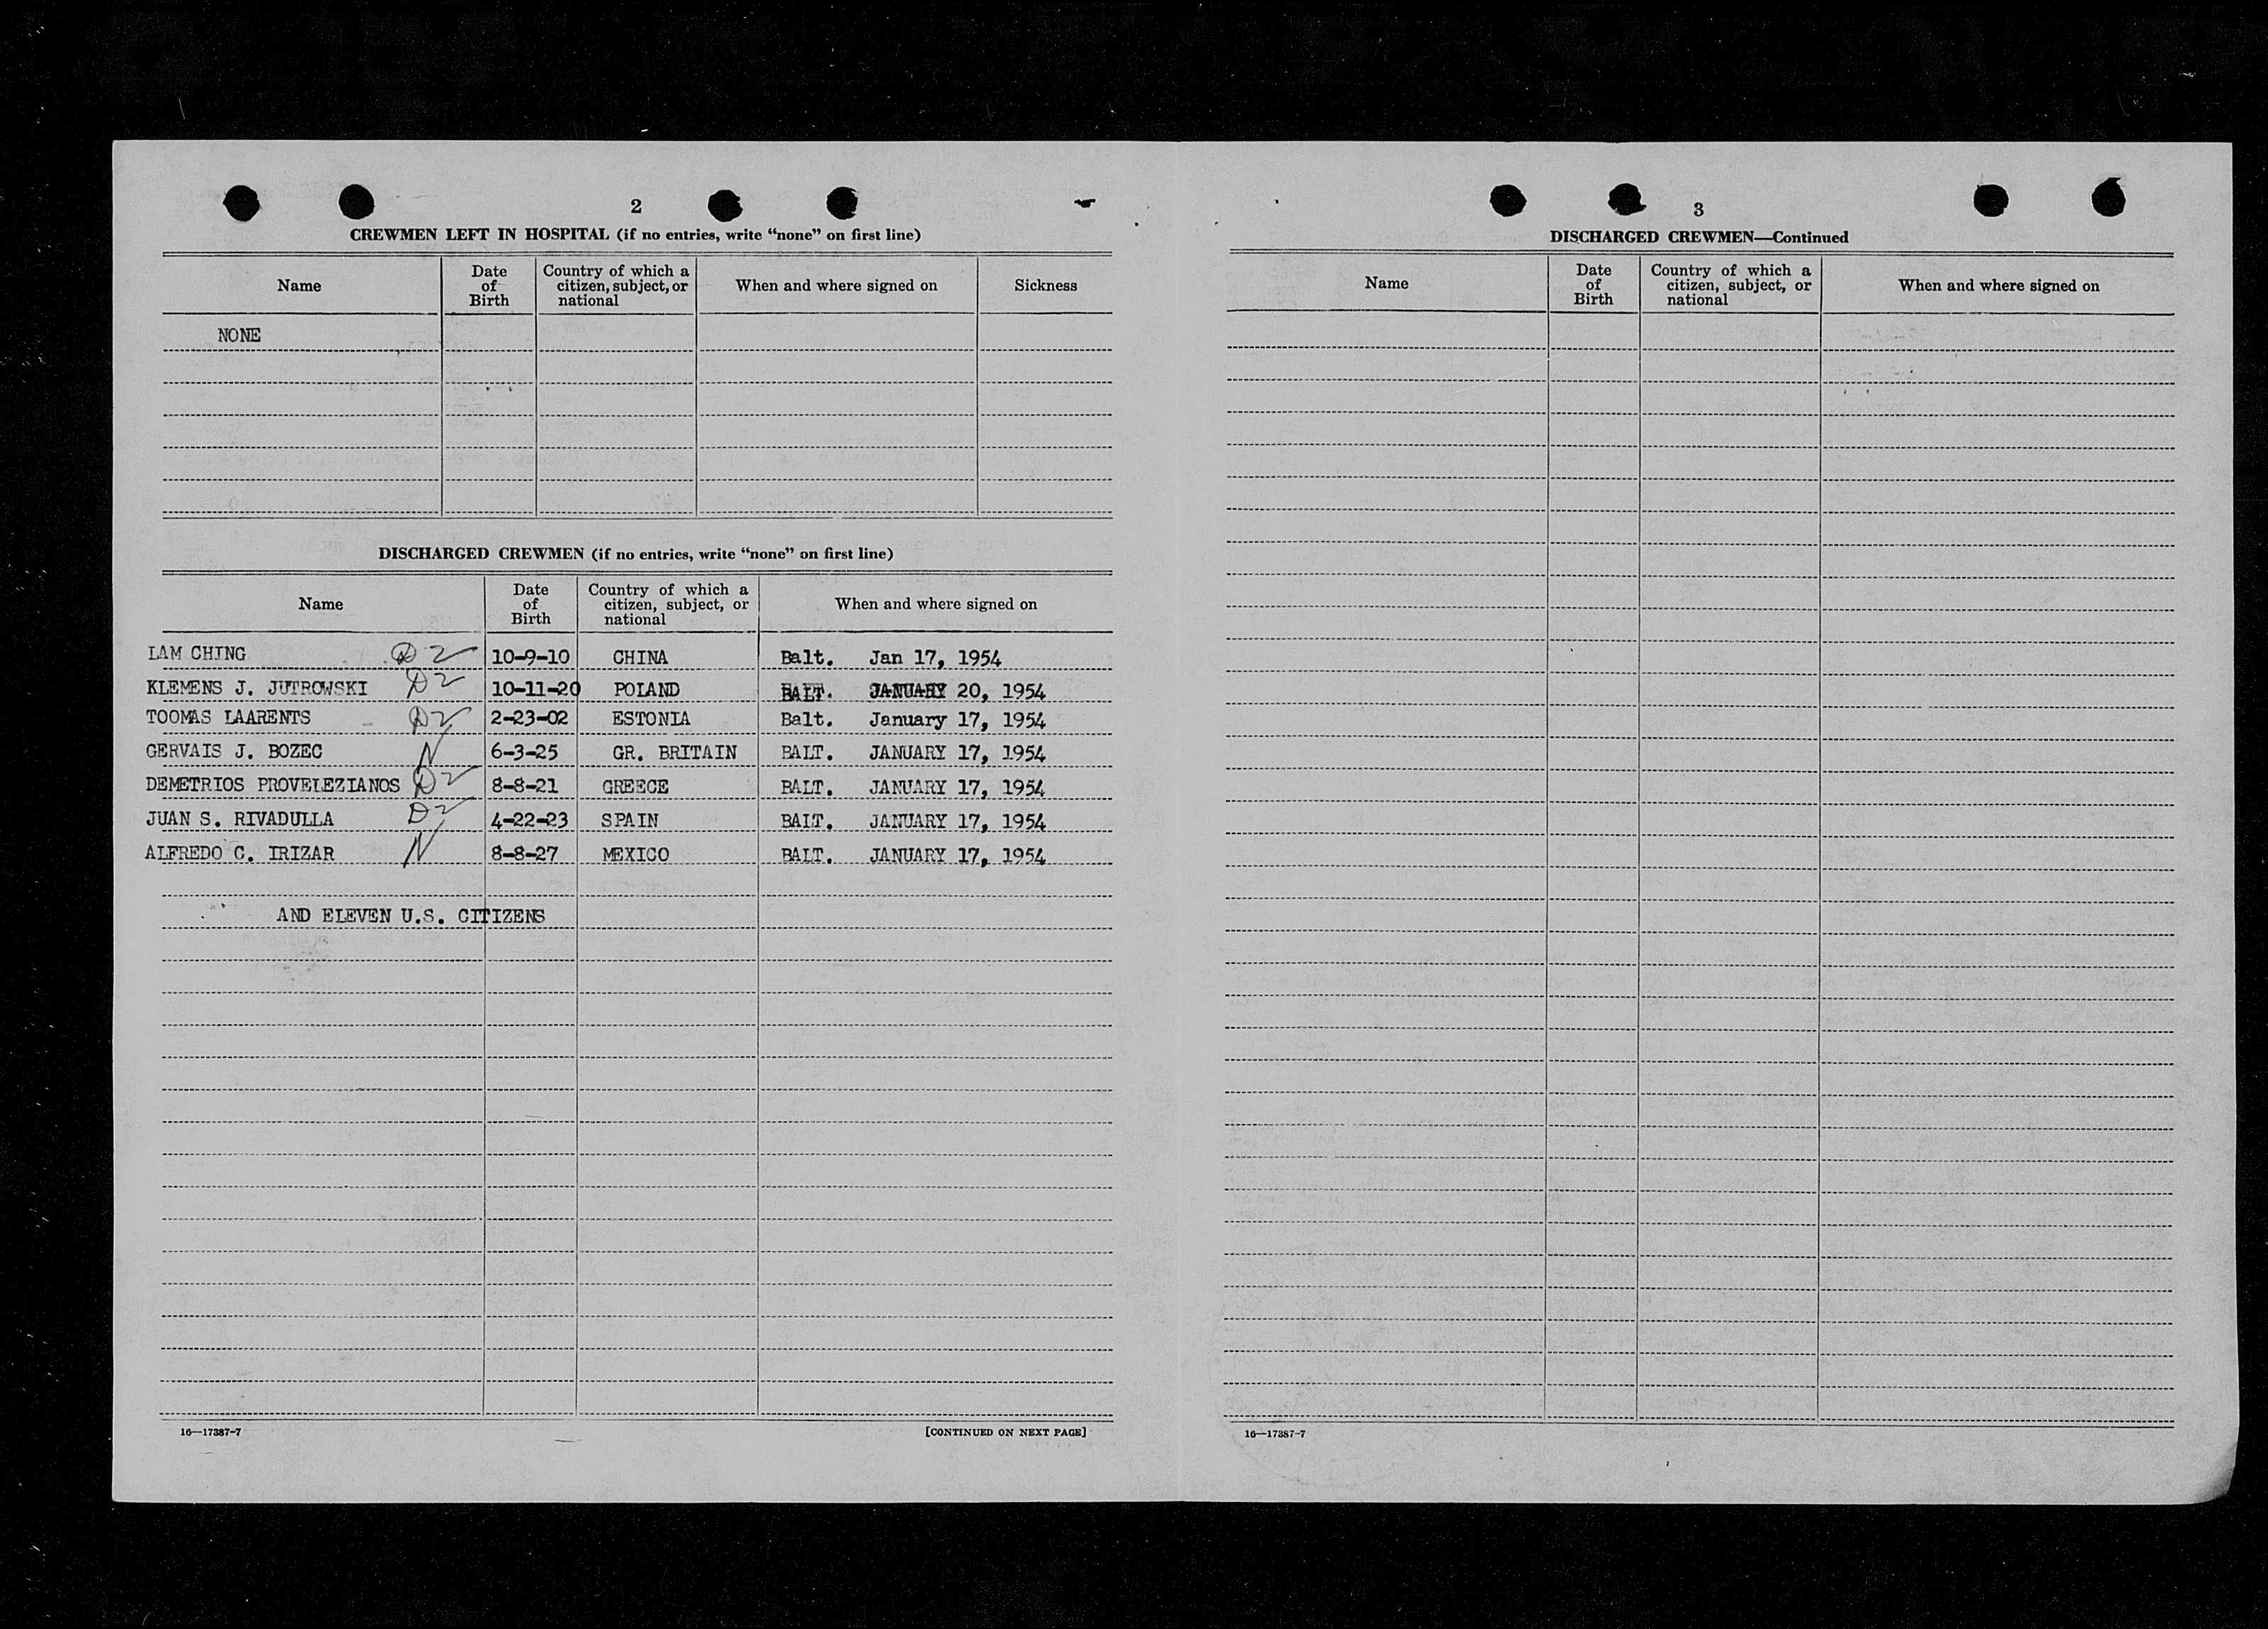 2
CREWMEN LEFT IN HOSPITAL (if no entries, write “none” on first line)
Name
Date of Birth
Country of which a citizen, subject, or national
When and where signed on
Sickness
NONE
DISCHARGED CREWMEN (if no entries, write “none” on first line)
Name
Date of Birth
Country of which a citizen, subject, or national
When and where signed on
LAM CHING D2 10-9-10 CHINA Balt. Jan 17, 1954
KLEMENS J. JUTROWSKI D2 10-11-20 POLAND BALT. JANUARY 20, 1954
TOOMAS LAARENTS D2 2-23-02 ESTONIA Balt. January 17, 1954
GERVAIS J. BOZEC N 6-3-25 GR. BRITAIN BALT. JANUARY 17, 1954
DEMETRIOS PROVELEZIANOS D2 8-8-21 GREECE BALT. JANUARY 17, 1954
JUAN S. RIVADULLA D2 4-22-23 SPAIN BALT. JANUARY 17, 1954
ALFREDO C. IRIZAR N 8-8-27 MEXICO BALT. JANUARY 17, 1954
AND ELEVEN U.S. CITIZENS
16—17387-7 [CONTINUED ON NEXT PAGE]
3
DISCHARGED CREWMEN—Continued
Name
Date of Birth
Country of which a citizen, subject, or national
When and where signed on
16—17387-7